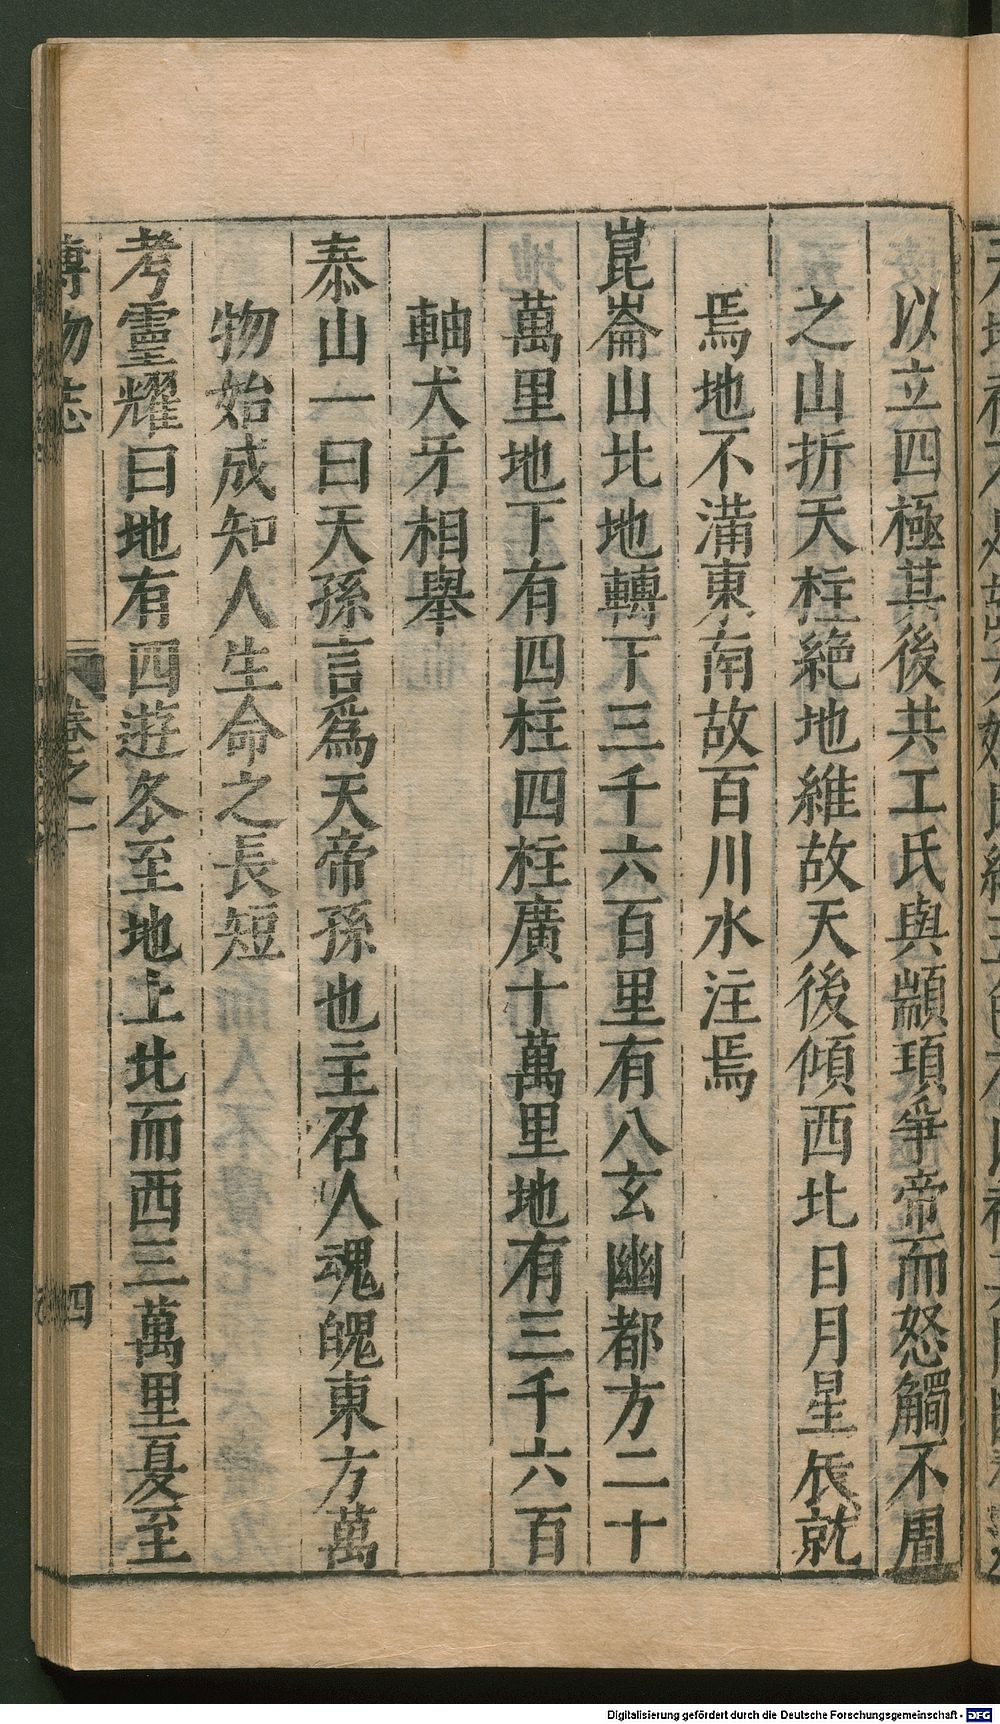 以立四極其後共工氏與顓頊爭帝而怒觸不周
之山折天柱絕地維故天後傾西北日月星辰就
焉地不滿東南故百川水注焉
崑崙山北地轉下三千六百里有八玄幽都方二十
萬里地下有四柱四柱廣十萬里地有三千六百
軸犬牙相舉
泰山一曰天孫言爲天帝孫也主召人魂魄東方萬
物始成知人生命之長短
考靈耀曰地有四遊冬至地上北而西三萬里夏至
博物志 卷之一 四
Digitalisierung gefördert durch die Deutsche Forschungsgemeinschaft - DFG